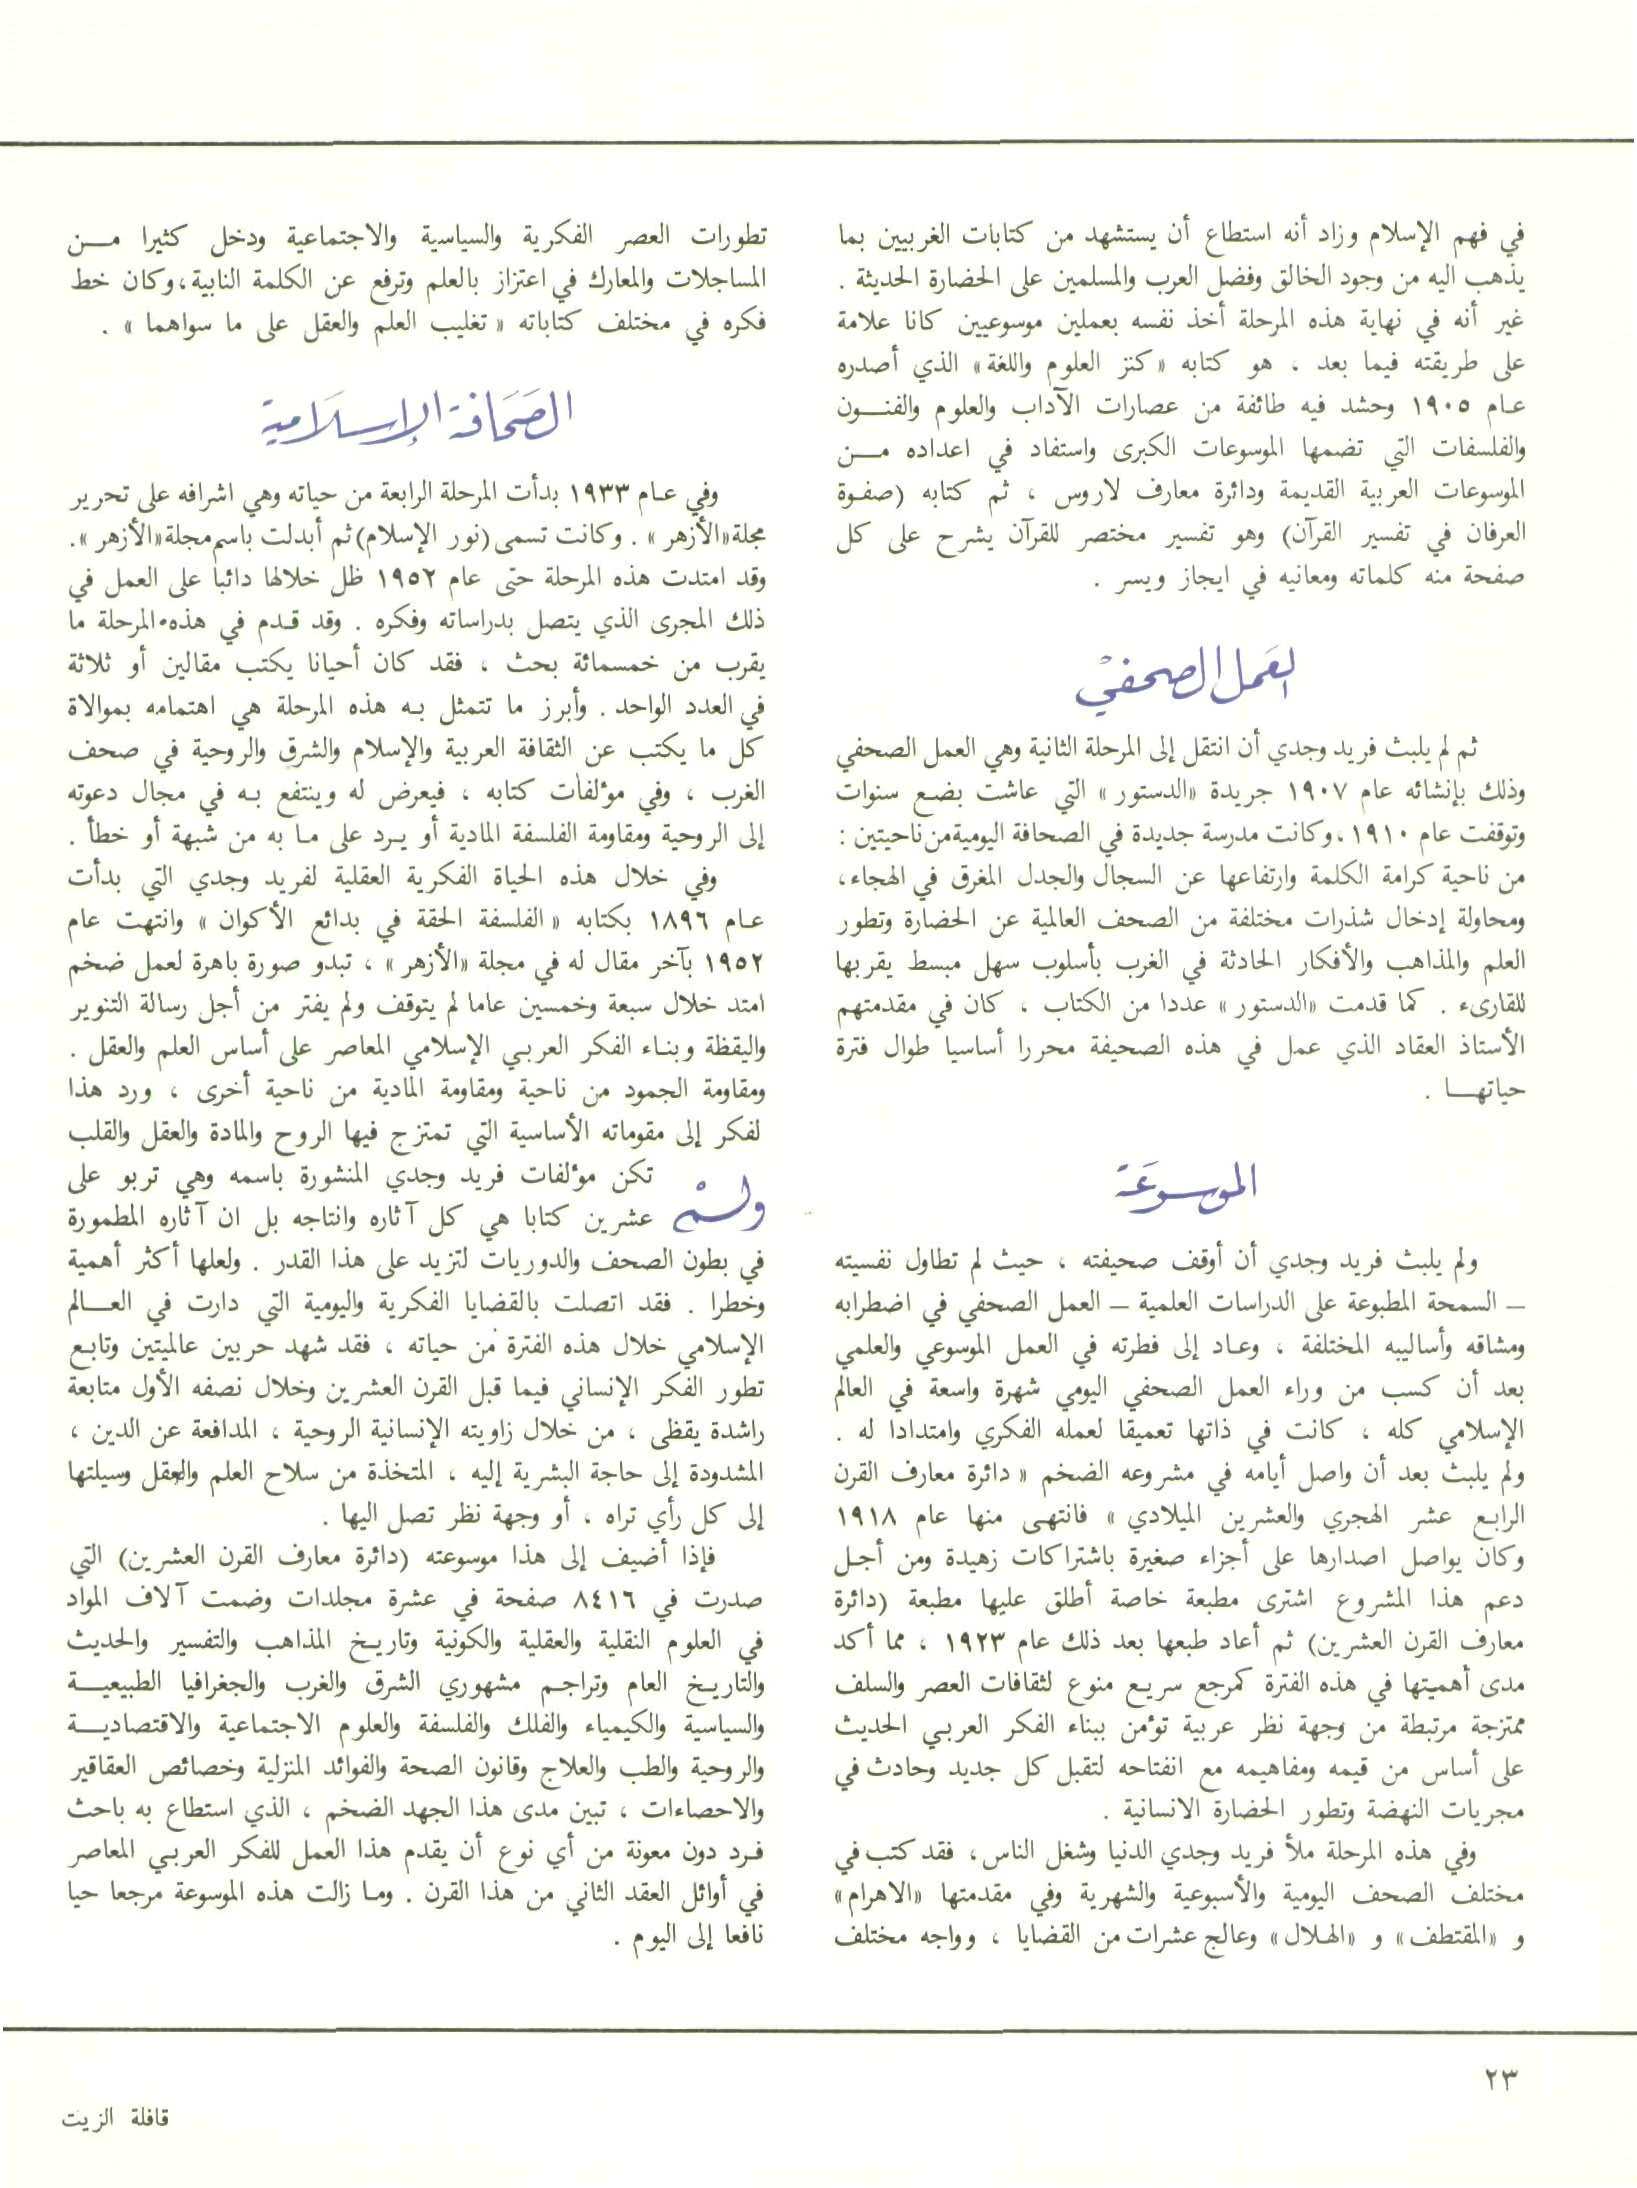 في فهم الإسلام وزاد أنه استطاع أن يستشهد من كتابات الغربيين بما
يذهب اليه من وجود الخالق وفضل العرب والمسلمين على الحضارة الحديثة .
غير أنه في نهاية هذه المرحلة أخذ نفسه بعملين موسوعيين كانا علامة
على طريقته فيما بعد ، هو كتابه «كنز العلوم واللغة» الذي أصدره
عام ١٩٠٥ وحشد فيه طائفة من عصارات الآداب والعلوم والفنـــون
والفلسفات التي تضمها الموسوعات الكبرى واستفاد في اعداده مـــن
الموسوعات العربية القديمة ودائرة معارف لاروس ، ثم كتابه (صفوة
العرفان في تفسير القرآن) وهو تفسير مختصر للقرآن يشرح على كل
صفحة منه كلماته ومعانيه في ايجاز ويسر .
العَمل الصحفيْ
ثم لم يلبث فريد وجدي أن انتقل إلى المرحلة الثانية وهي العمل الصحفي
وذلك بإنشائه عام ١٩٠٧ جريدة «الدستور» التي عاشت بضع سنوات
وتوقفت عام ١٩١٠،وكانت مدرسة جديدة في الصحافة اليومية من ناحيتين :
من ناحية كرامة الكلمة وارتفاعها عن السجال والجدل المغرق في الهجاء،
ومحاولة إدخال شذرات مختلفة من الصحف العالمية عن الحضارة وتطور
العلم والمذاهب والأفكار الحادثة في الغرب بأسلوب سهل مبسط يقربها
للقارىء . كما قدمت «الدستور» عددا من الكتاب ، كان في مقدمتهم
الأستاذ العقاد الذي عمل في هذه الصحيفة محررا أساسيا طوال فترة
حياتهـــا .
الموسوعَة
ولم يلبث فريد وجدي أن أوقف صحيفته ، حيث لم تطاول نفسيته
– السمحة المطبوعة على الدراسات العلمية – العمل الصحفي في اضطرابه
ومشاقه وأساليبه المختلفة ، وعاد إلى فطرته في العمل الموسوعي والعلمي
بعد أن كسب من وراء العمل الصحفي اليومي شهرة واسعة في العالم
الإسلامي كله ، كانت في ذاتها تعميقا لعمله الفكري وامتدادا له .
ولم يلبث بعد أن واصل أيامه في مشروعه الضخم « دائرة معارف القرن
الرابع عشر الهجري والعشرين الميلادي » فانتهى منها عام ١٩١٨
وكان يواصل اصدارها على أجزاء صغيرة باشتراكات زهيدة ومن أجل
دعم هذا المشروع اشترى مطبعة خاصة أطلق عليها مطبعة (دائرة
معارف القرن العشرين) ثم أعاد طبعها بعد ذلك عام ١٩٢٣ ، مما أكد
مدى أهميتها في هذه الفترة كمرجع سريع منوع لثقافات العصر والسلف
ممتزجة مرتبطة من وجهة نظر عربية تؤمن ببناء الفكر العربي الحديث
على أساس من قيمه ومفاهيمه مع انفتاحه لتقبل كل جديد وحادث في
مجريات النهضة وتطور الحضارة الانسانية .
وفي هذه المرحلة ملأ فريد وجدي الدنيا وشغل الناس، فقد كتب في
مختلف الصحف اليومية والأسبوعية والشهرية وفي مقدمتها «الاهرام»
و «المقتطف» و «الهلال» وعالج عشرات من القضايا ، وواجه مختلف
تطورات العصر الفكرية والسياسية والاجتماعية ودخل كثيرا مـــن
المساجلات والمعارك في اعتزاز بالعلم وترفع عن الكلمة النابية،وكان خط
فكره في مختلف كتاباته « تغليب العلم والعقل على ما سواهما » .
الصَحَافة الإسلَامية
وفي عام ١٩٣٣ بدأت المرحلة الرابعة من حياته وهي اشرافه على تحرير
مجلة«الأزهر» . وكانت تسمى (نور الإسلام) ثم أبدلت باسم مجلة«الأزهر».
وقد امتدت هذه المرحلة حتى عام ١٩٥٢ ظل خلالها دائبا على العمل في
ذلك المجرى الذي يتصل بدراساته وفكره . وقد قدم في هذه المرحلة ما
يقرب من خمسمائة بحث ، فقد كان أحيانا يكتب مقالين أو ثلاثة
في العدد الواحد . وأبرز ما تتمثل به هذه المرحلة هي اهتمامه بموالاة
كل ما يكتب عن الثقافة العربية والإسلام والشرق والروحية في صحف
الغرب ، وفي مؤلفات كتابه ، فيعرض له وينتفع به في مجال دعوته
إلى الروحية ومقاومة الفلسفة المادية أو يرد على ما به من شبهة أو خطأ .
وفي خلال هذه الحياة الفكرية العقلية لفريد وجدي التي بدأت
عام ١٨٩٦ بكتابه « الفلسفة الحقة في بدائع الأكوان » وانتهت عام
١٩٥٢ بآخر مقال له في مجلة «الأزهر» ، تبدو صورة باهرة لعمل ضخم
امتد خلال سبعة وخمسين عاما لم يتوقف ولم يفتر من أجل رسالة التنوير
واليقظة وبناء الفكر العربي الإسلامي المعاصر على أساس العلم والعقل .
ومقاومة الجمود من ناحية ومقاومة المادية من ناحية أخرى ، ورد هذا
لفكر إلى مقوماته الأساسية التي تمتزج فيها الروح والمادة والعقل والقلب
ولمْ تكن مؤلفات فريد وجدي المنشورة باسمه وهي تربو على
عشرين كتابا هي كل آثاره وانتاجه بل ان آثاره المطمورة
في بطون الصحف والدوريات لتزيد على هذا القدر . ولعلها أكثر أهمية
وخطرا . فقد اتصلت بالقضايا الفكرية واليومية التي دارت في العـــالم
الإسلامي خلال هذه الفترة من حياته ، فقد شهد حربين عالميتين وتابع
تطور الفكر الإنساني فيما قبل القرن العشرين وخلال نصفه الأول متابعة
راشدة يقظى ، من خلال زاويته الإنسانية الروحية ، المدافعة عن الدين ،
المشدودة إلى حاجة البشرية إليه ، المتخذة من سلاح العلم والعقل وسيلتها
إلى كل رأي تراه ، أو وجهة نظر تصل اليها .
فإذا أضيف إلى هذا موسوعته (دائرة معارف القرن العشرين) التي
صدرت في ٨٤١٦ صفحة في عشرة مجلدات وضمت آلاف المواد
في العلوم النقلية والعقلية والكونية وتاريخ المذاهب والتفسير والحديث
والتاريخ العام وتراجم مشهوري الشرق والغرب والجغرافيا الطبيعيـــة
والسياسية والكيمياء والفلك والفلسفة والعلوم الاجتماعية والاقتصاديـــة
والروحية والطب والعلاج وقانون الصحة والفوائد المنزلية وخصائص العقاقير
والاحصاءات ، تبين مدى هذا الجهد الضخم ، الذي استطاع به باحث
فرد دون معونة من أي نوع أن يقدم هذا العمل للفكر العربي المعاصر
في أوائل العقد الثاني من هذا القرن . وما زالت هذه الموسوعة مرجعا حيا
نافعا إلى اليوم .
٢٣
قافلة الزيت